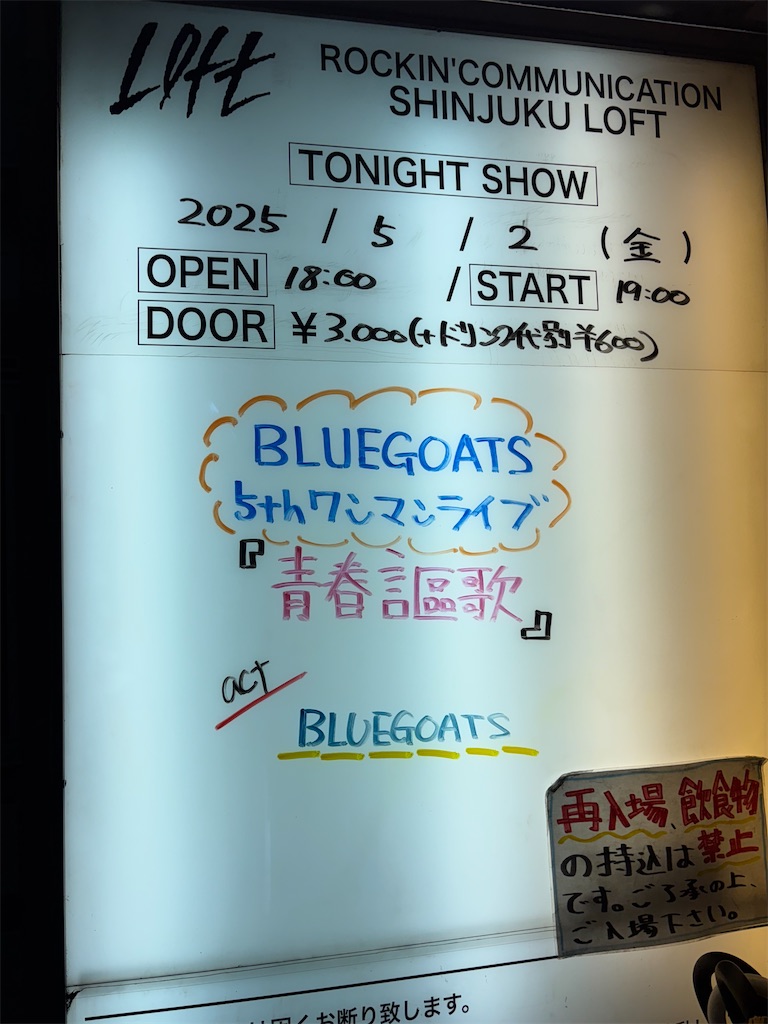 LOFT
ROCKIN'COMMUNICATION
SHINJUKU LOFT
TONIGHT SHOW
2025 / 5 / 2 (金)
OPEN 18:00 / START 19:00
DOOR ¥3.000(+ドリンク代別¥600)
BLUEGOATS
5thワンマンライブ
『青春謳歌』
act
BLUEGOATS
再入場、飲食物
の持込は禁止
です。ご了承の上、
ご入場下さい。
お断り致します。